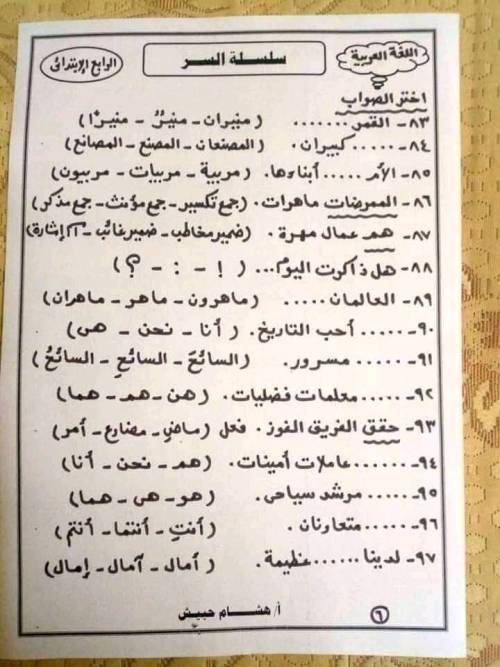 اللغة العربية
سلسلة السر
الرابع الابتدائى
اختر الصواب
٨٣- القمر ....... (منيران - منيرٌ - منيرًا)
٨٤- ..... كبيران. (المصنعان - المصنع - المصانع)
٨٥- الأم ..... أبناءها. (مربية - مربيات - مربيون)
٨٦- الممرضات ماهرات. (جمع تكسير - جمع مؤنث - جمع مذكر)
٨٧- هم عمال مهرة. (ضمير مخاطب - ضمير غائب - اسم إشارة)
٨٨- هل ذاكرت اليوم... ( ! - : - ؟ )
٨٩- العالمان ..... (ماهرون - ماهر - ماهران)
٩٠- ..... أحب التاريخ. (أنا - نحن - هى)
٩١- ..... مسرور. (السائحَ - السائحِ - السائحُ)
٩٢- ...... معلمات فضليات. (هن - هم - هما)
٩٣- حقق الفريق الفوز. فعل (ماضٍ - مضارع - أمر)
٩٤- ...... عاملات أمينات. (هم - نحن - أنا)
٩٥- ..... مرشد سياحى. (هو - هى - هما)
٩٦- ..... متعاونان. (أنتِ - أنتما - أنتم)
٩٧- لدينا ...... عظيمة. (أمال - آمال - إمال)
أ/ هشام حبيش
٦